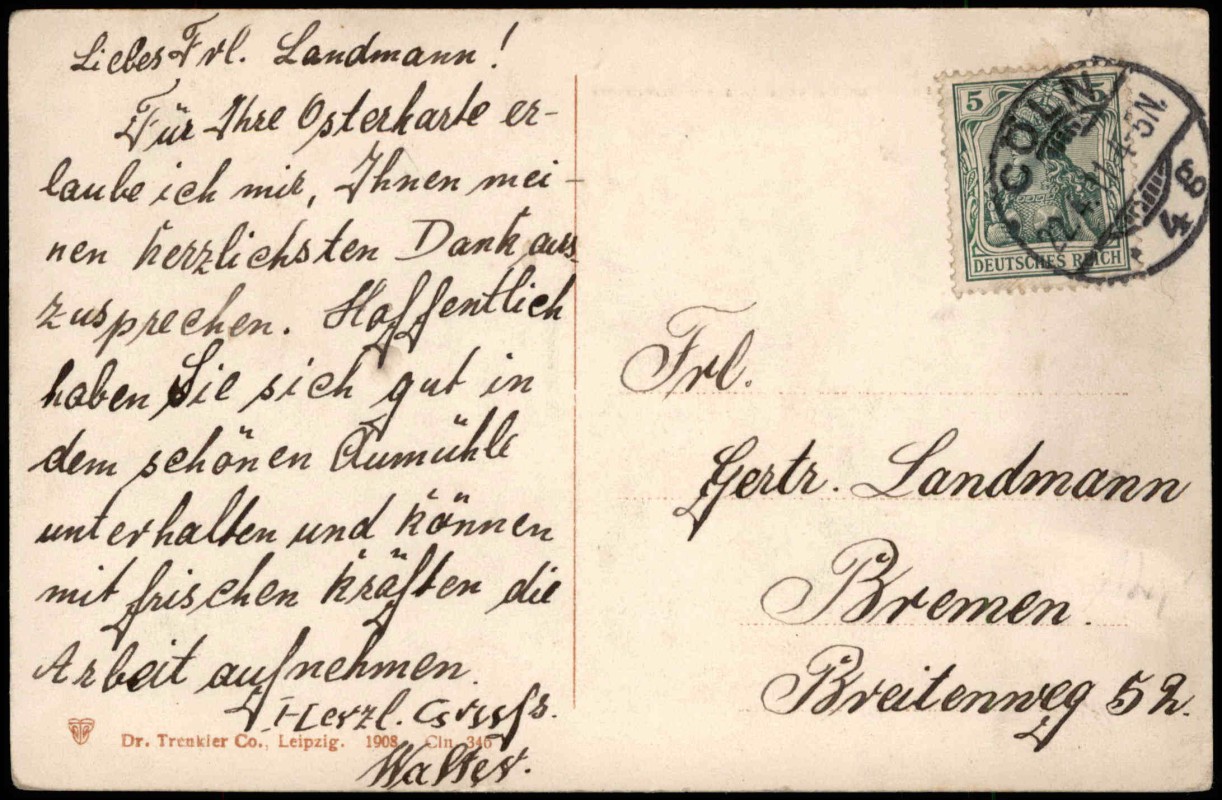 Liebes Frl. Landmann!
Für Ihre Osterkarte er-
laube ich mir, Ihnen mei-
nen herzlichsten Dank aus-
zusprechen. Hoffentlich
haben Sie sich gut in
dem schönen Aumühle
unterhalten und können
mit frischen Kräften die
Arbeit aufnehmen.
Herzl. Gruss.
Walter.
Dr. Trenkler Co., Leipzig. 1908 Cln. 346
5 5
DEUTSCHES REICH
CÖLN
22.4.11.4-5N.
* 48
Frl.
Gertr. Landmann
Bremen.
Breitenweg 52.